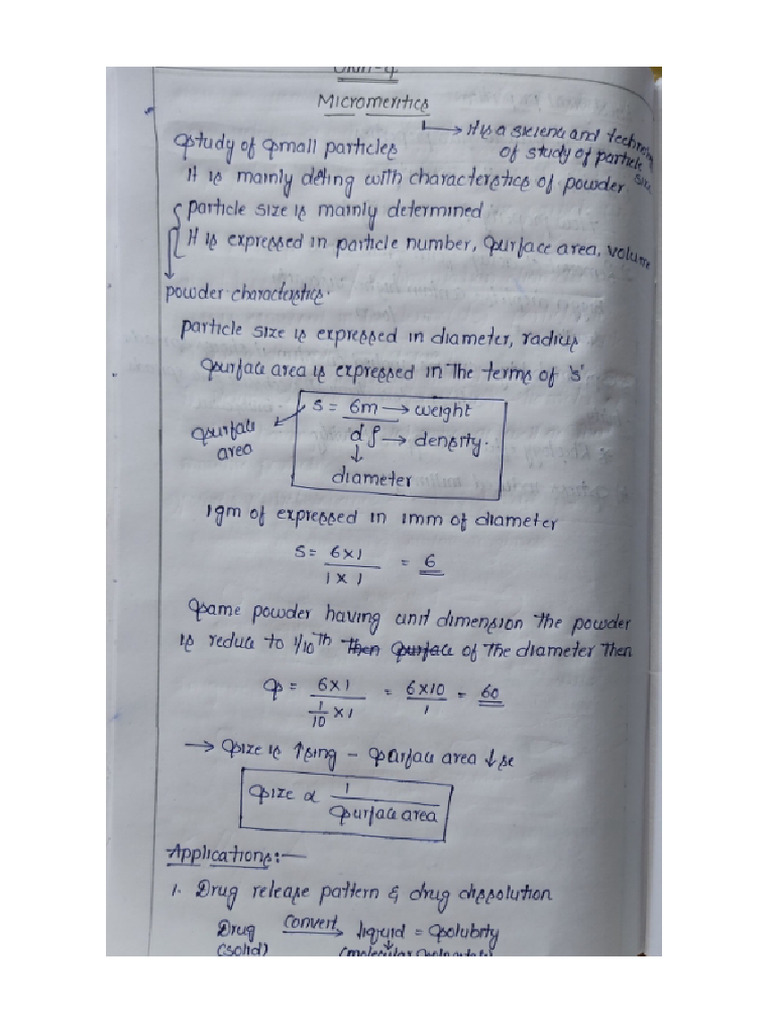 Unit-4
Micromeritics
→ It is a science and technology of study of particle size
Study of small particles
It is mainly deling with characterstics of powder
particle size is mainly determined
It is expressed in particle number, surface area, volume
powder characterstics.
particle size is expressed in diameter, radius
surface area is expressed in the terms of 's'
s = 6m → weight
surface area
d ρ → density.
↓
diameter
1gm of expressed in 1mm of diameter
S = 6×1 / 1×1 = 6
same powder having unit dimension the powder
is reduce to 1/10th then surface of the diameter then
S = 6×1 / 1/10 ×1 = 6×10 / 1 = 60
→ size is ↑sing - surface area ↓se
size ∝ 1 / surface area
Applications:-
1. Drug release pattern & drug dissolution
Drug convert → liquid = solubity
(solid) (molecular